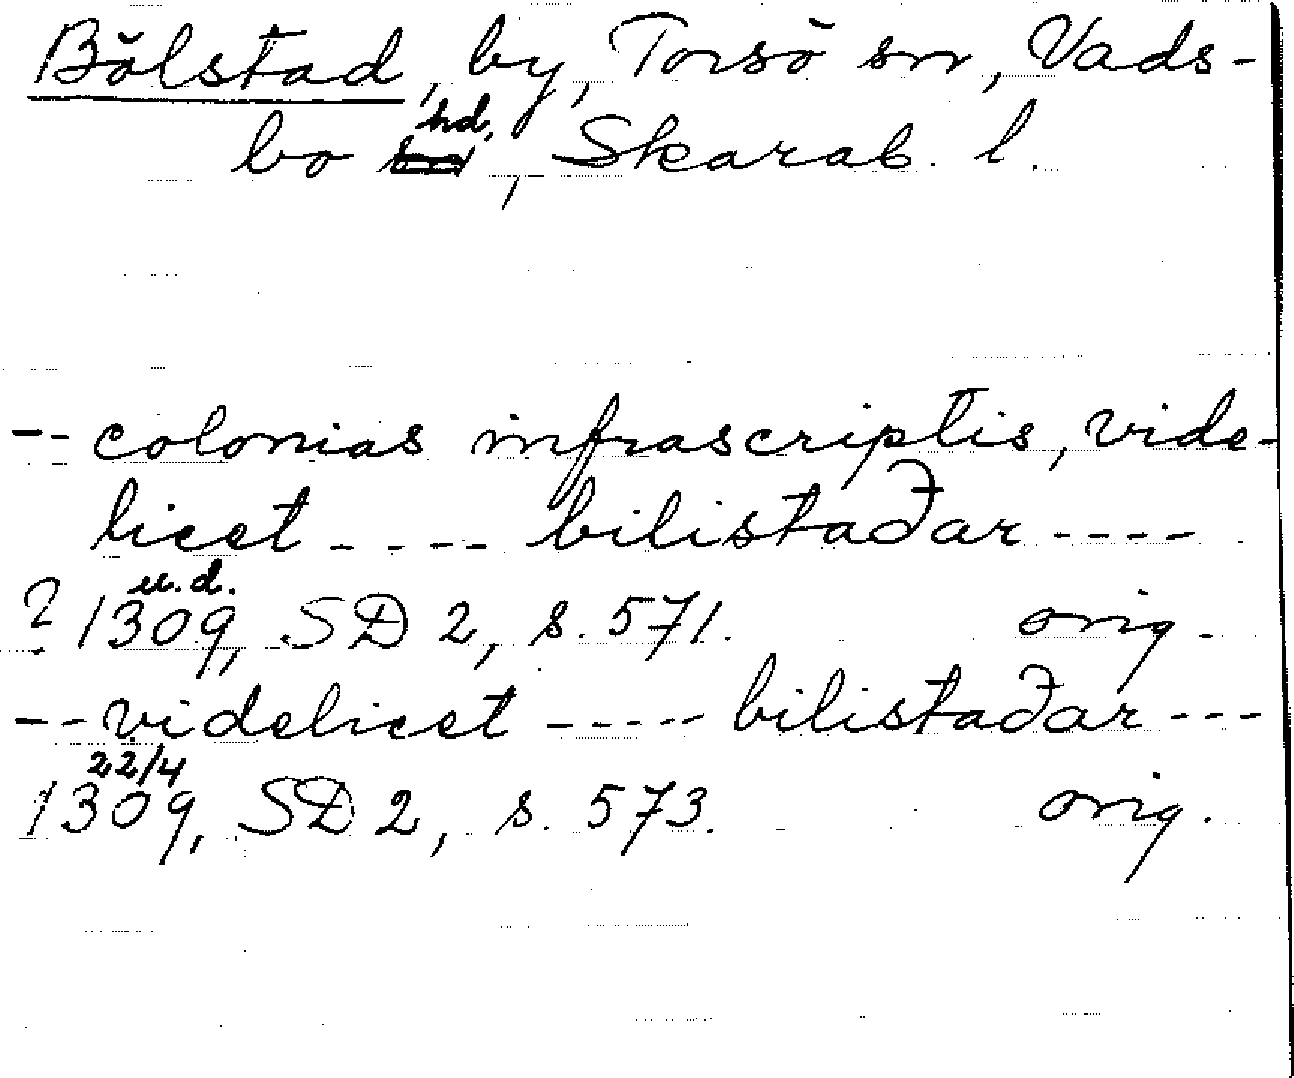 Bölstad, by, Torsö sn, Vads-
bo hd, Skarab. l.
-- colonias infrascriptis, vide-
licet ---- bilistaðar ----
u.d.
? 1309, SD 2, s. 571. orig.
-- videlicet ----- bilistaðar ---
22/4
1309, SD 2, s. 573. orig.